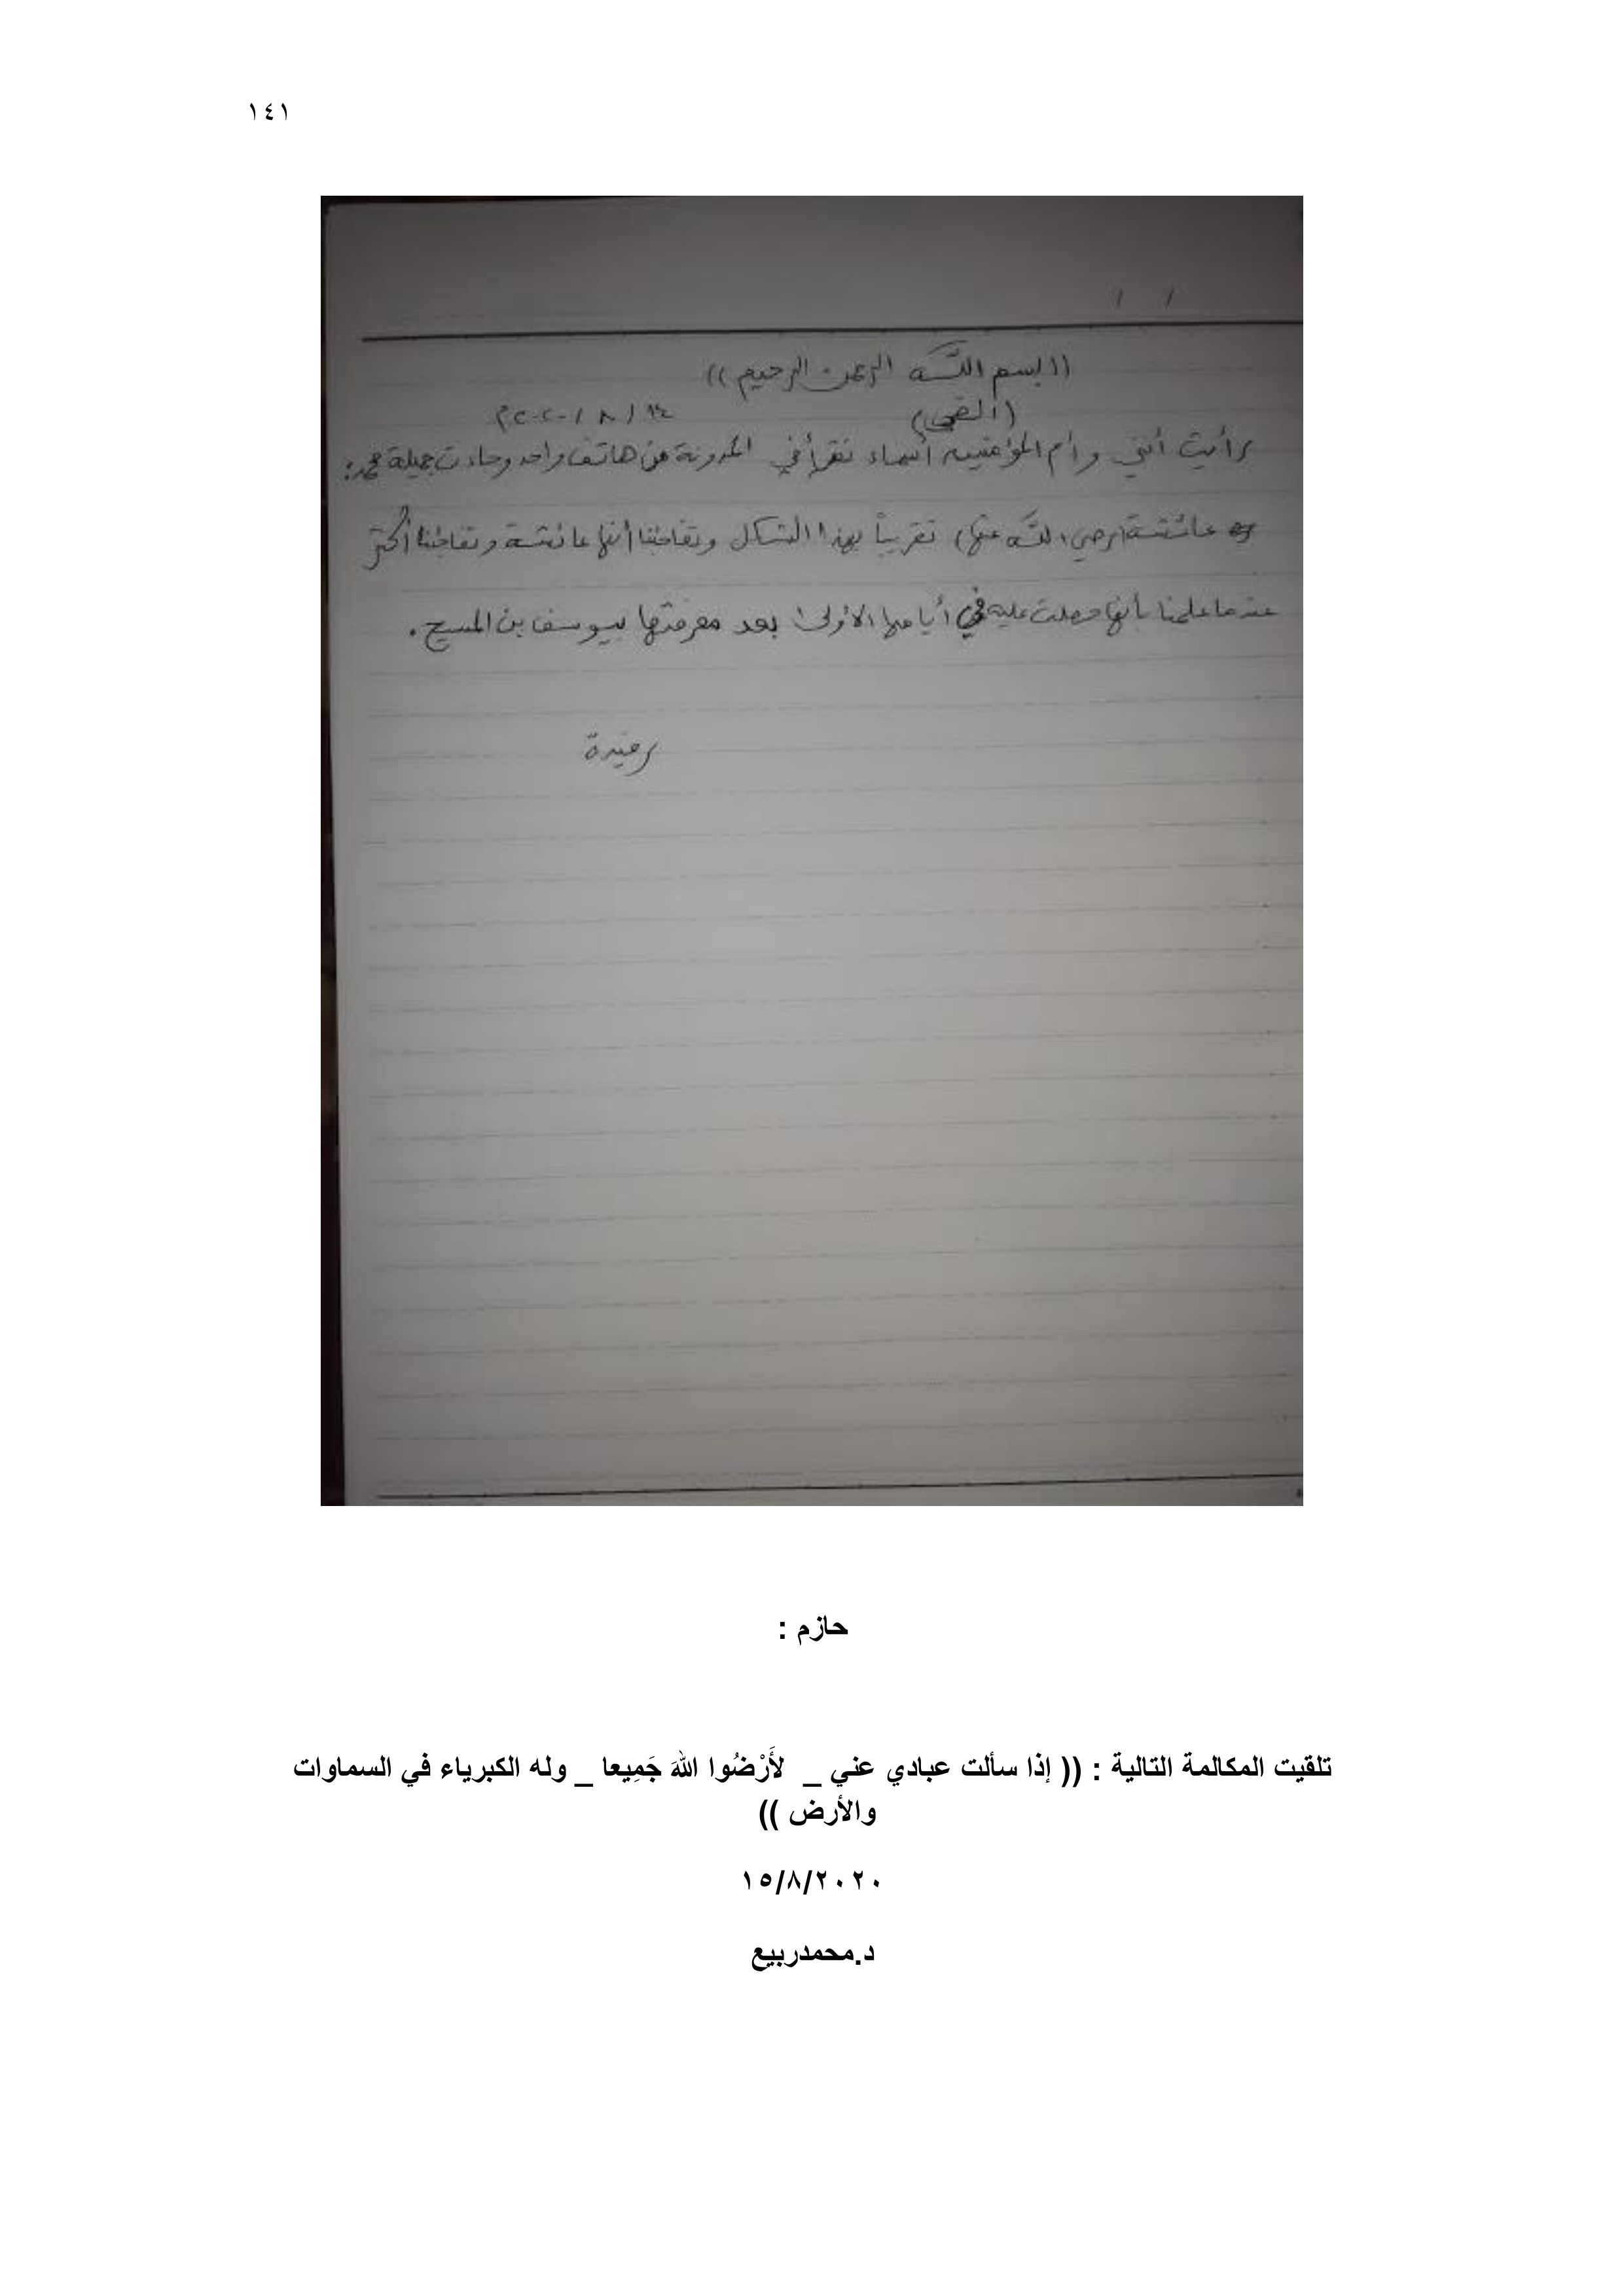 ١٤١
((بسم اللـه الرحمن الرحيم))
١٤ / ٨ / ٢٠٢٠م
رأيت أنني و أم المؤمنين أسماء نقرأ في المدونة من هاتف واحد وجاءت جميلة محمد:
عائشة (رضي اللـه عنها) تقريباً بهذا الشكل وتفاجئنا أنها عائشة وتفاجئنا أكثر
عندما علمنا بأنها حصلت عليه في أيامها الأولى بعد معرفتها بيوسف بن المسيح.
رفيدة
حازم :
تلقيت المكالمة التالية : (( إذا سألت عبادي عني _ لأَرْضُوا اللهَ جَمِيعا _ وله الكبرياء في السماوات
والأرض ))
١٥/٨/٢٠٢٠
د.محمدربيع